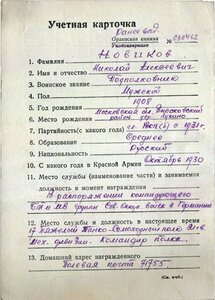 Учетная карточка
Орденская книжка № 030462
Удостоверение
1. Фамилия Новиков
2. Имя и отчество Николай Алексеевич
3. Воинское звание Подполковник
4. Пол Мужской
5. Год рождения 1908
6. Место рождения Московской обл.
район дер.
7. Партийность (с какого года) чл. ВКП(б) с 1931 г.
8. Образование Среднее
9. Национальность Русский
10. С какого года в Красной Армии Октябрь 1930
11. Место службы (наименование части) и занимаемая
должность в момент награждения
В распоряжении командующего
БТ и МВ Группы Сов. Оккуп. Войск в Германии
12. Место службы и должность в настоящее время
Тяжелый Танко-Самоходный полк
Мех. дивизии. Командир полка.
13. Домашний адрес награжденного
Полевая почта 71755